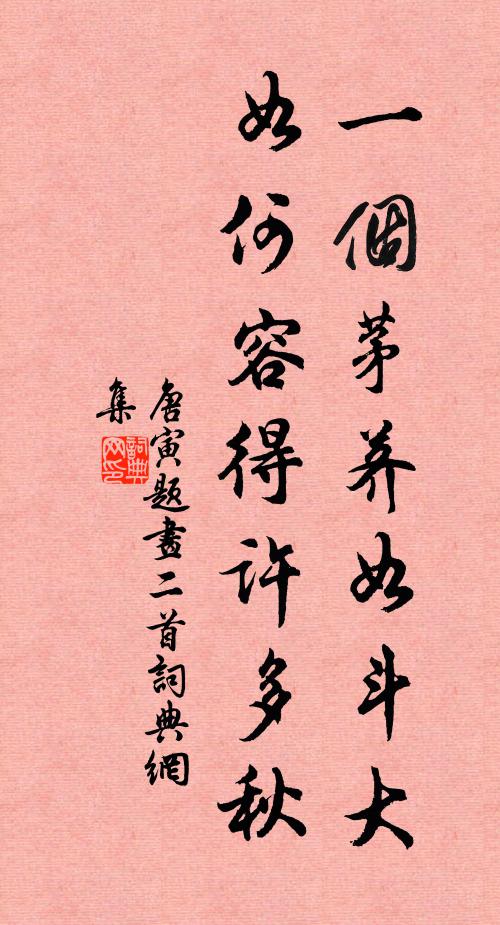 一個茅如斗大
如何容得許多秋
唐寅題畫二首詞典網
集
詞典
网印